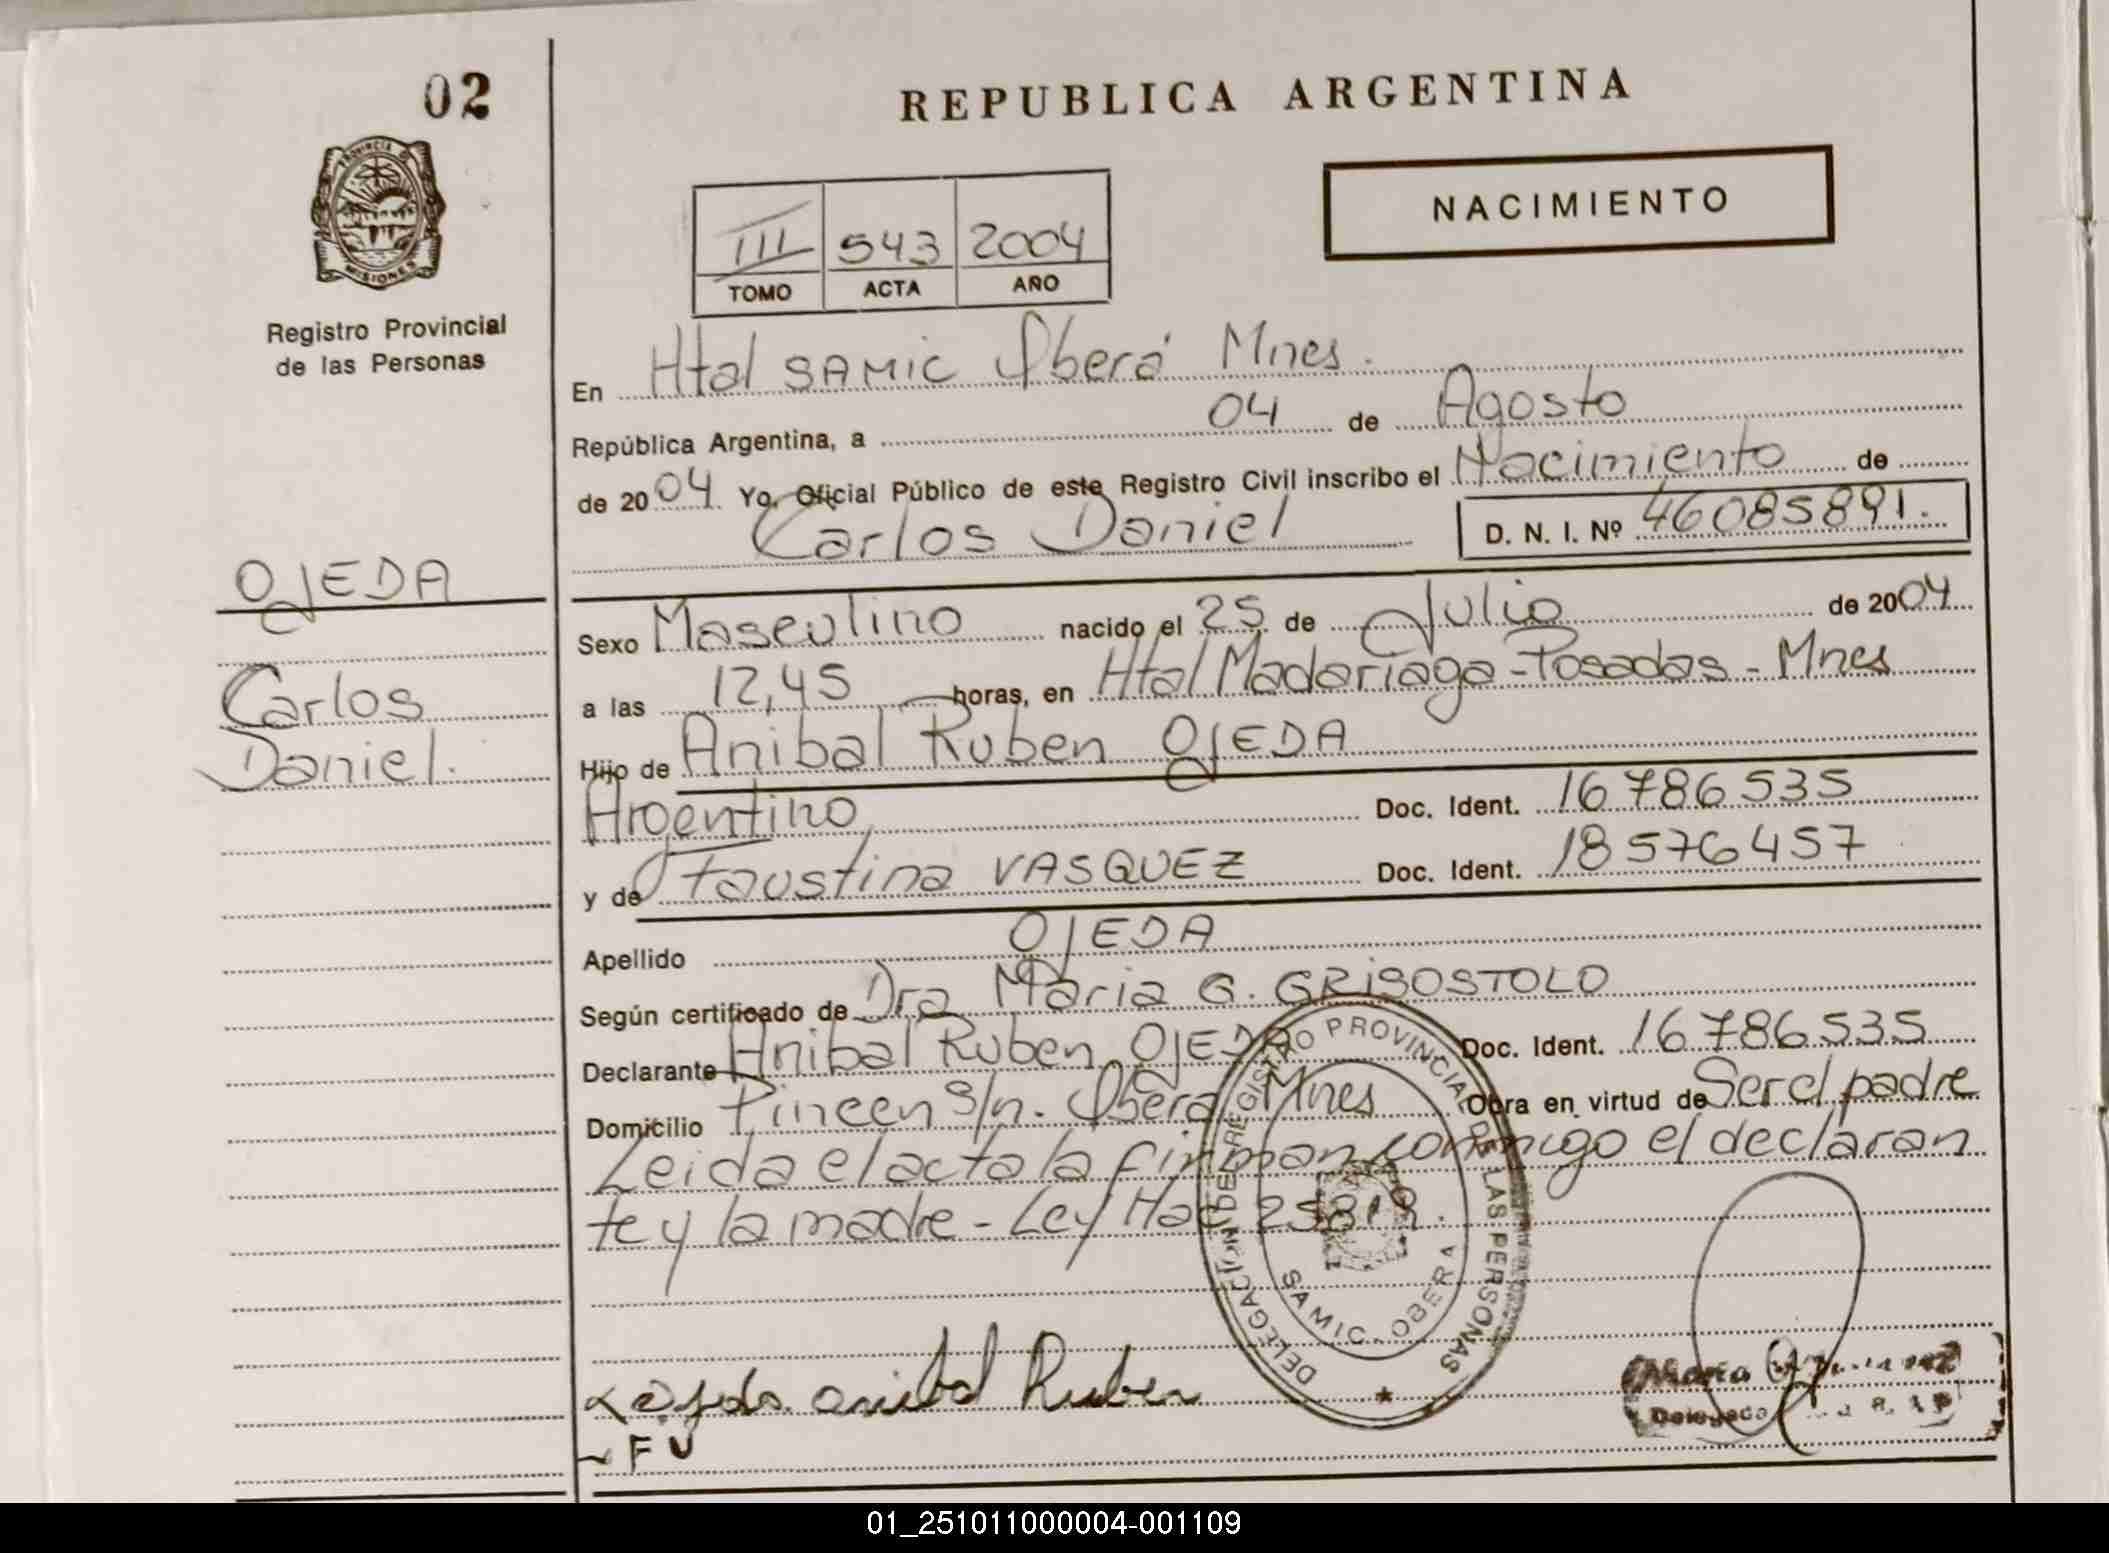 02
REPUBLICA ARGENTINA
NACIMIENTO
PROVINCIA DE
MISIONES
Registro Provincial
de las Personas
III 543 2004
TOMO ACTA AÑO
En Htal SAMIC Oberá Mnes.
República Argentina, a 04 de Agosto
de 2004 Yo, Oficial Público de este Registro Civil inscribo el Nacimiento de
Carlos Daniel D. N. I. Nº 46085891.
OJEDA
Carlos
Daniel.
Sexo Masculino nacido el 25 de Julio de 2004
a las 12,45 horas, en Htal Madariaga - Posadas - Mnes
Hijo de Anibal Ruben OJEDA
Argentino Doc. Ident. 16786535
y de Faustina VASQUEZ Doc. Ident. 18576457
Apellido OJEDA
Según certificado de Dra Maria G. GRISOSTOLO
Declarante Anibal Ruben OJEDA Doc. Ident. 16786535
Domicilio Pincen s/n. Oberá Mnes Obra en virtud de Ser el padre
Leida el acta la firman conmigo el declaran
te y la madre - Ley Nac 25819.
DELEGACION DE REGISTRO PROVINCIAL DE LAS PERSONAS
SAMIC - OBERA
Ojeda anibal Ruben
F V
Maria
Delegada
01_251011000004-001109